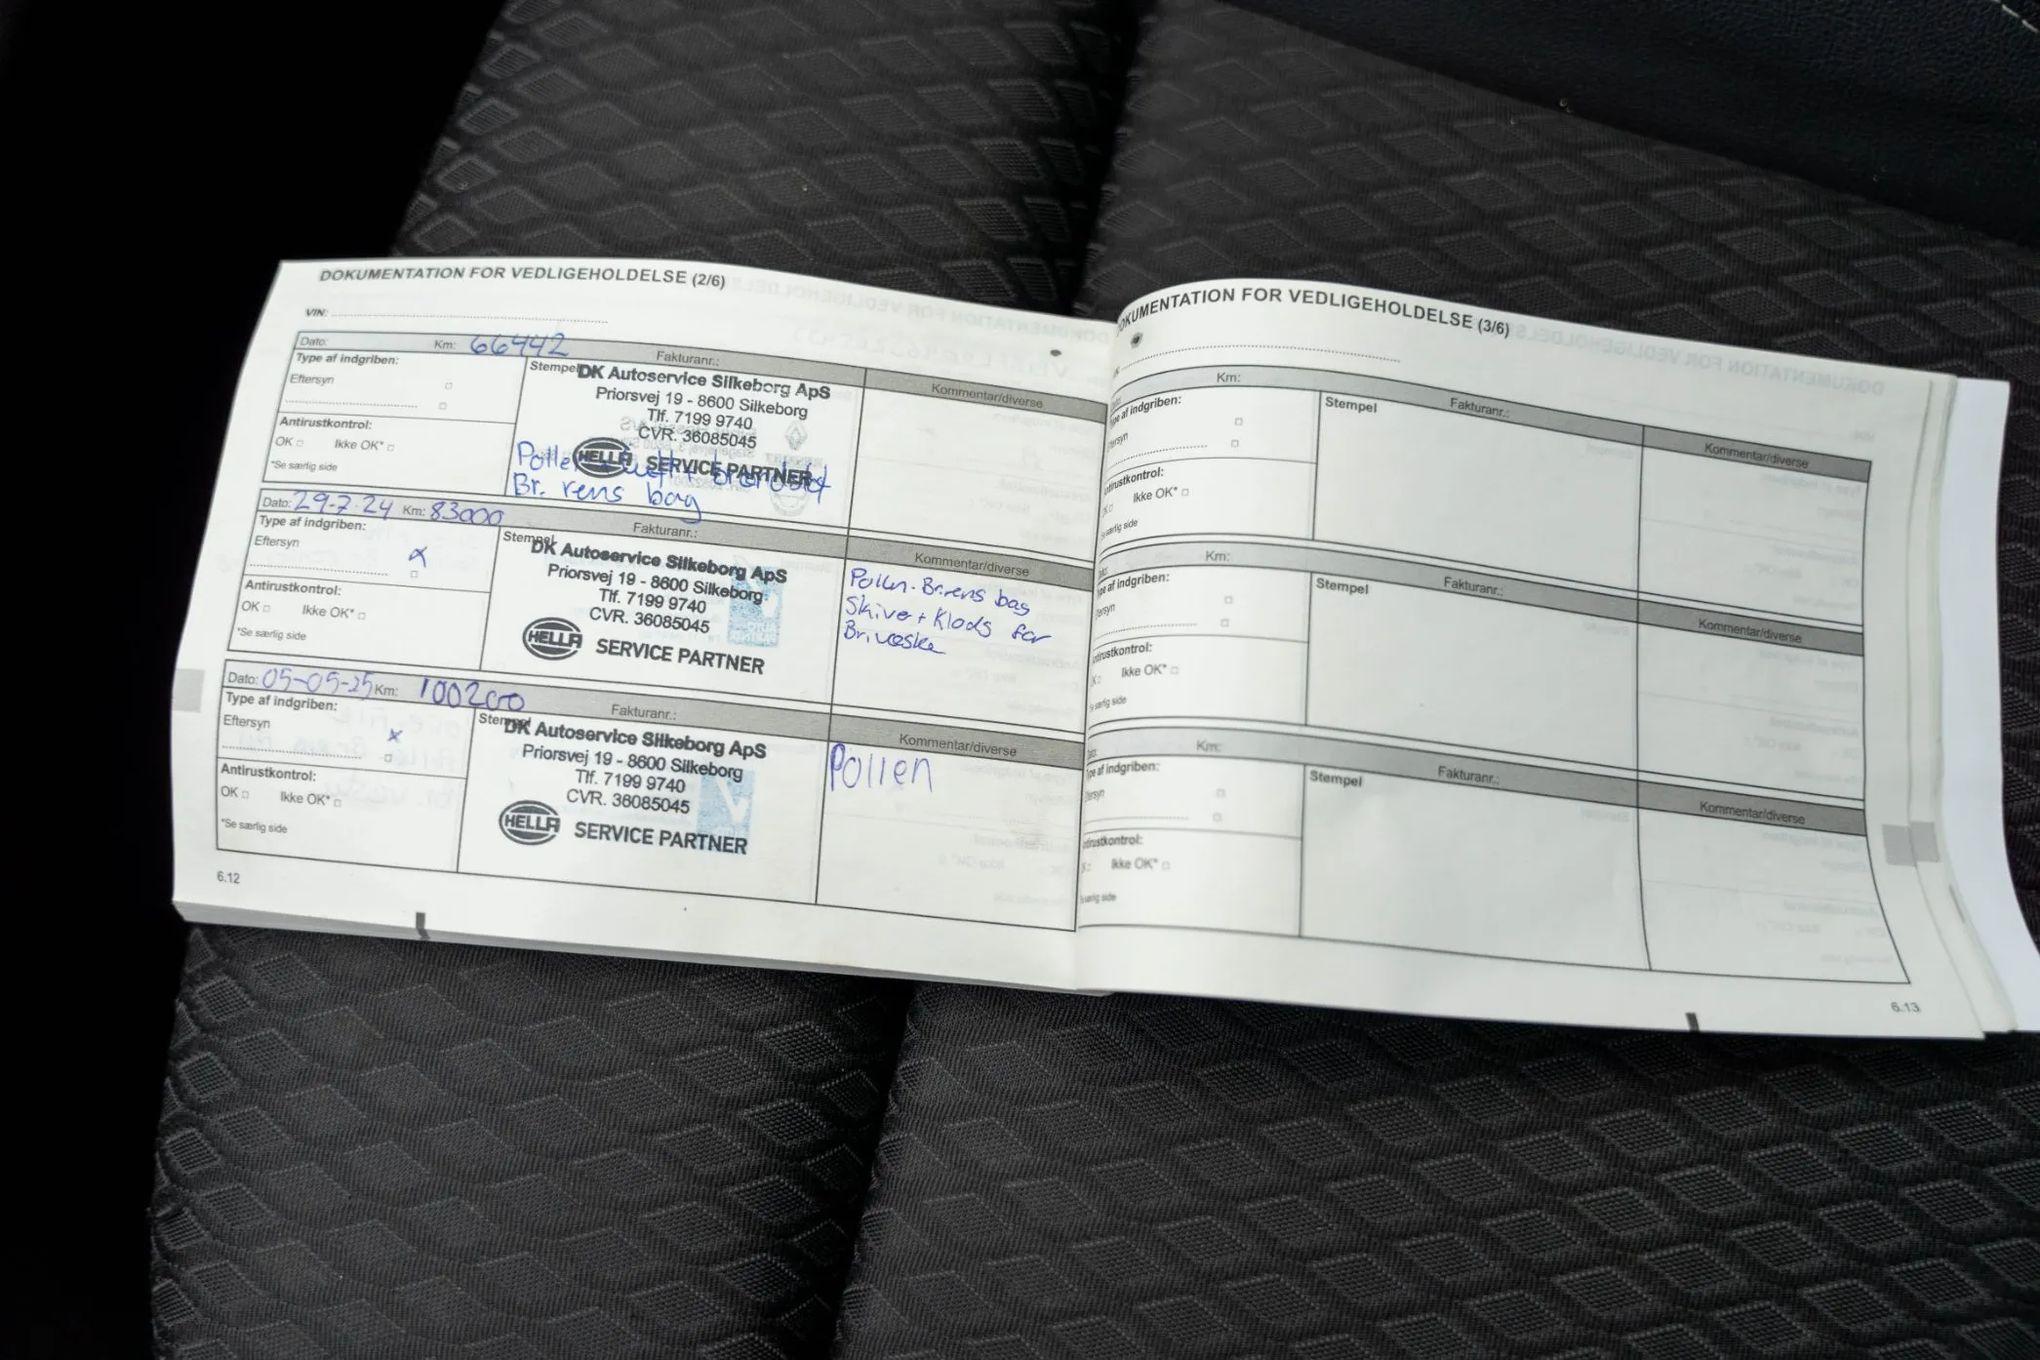 DOKUMENTATION FOR VEDLIGEHOLDELSE (2/6)
VIN:
Dato: Km: 66442 Fakturanr.:
Type af indgriben:
Eftersyn
Antirustkontrol:
OK Ikke OK*
*Se særlig side
Stempel
DK Autoservice Silkeborg ApS
Priorsvej 19 - 8600 Silkeborg
Tlf. 7199 9740
CVR. 36085045
HELLA SERVICE PARTNER
Pollen
Br. rens bag
Kommentar/diverse
Dato: 29-7-24 Km: 83000 Fakturanr.:
Type af indgriben:
Eftersyn x
Antirustkontrol:
OK Ikke OK*
*Se særlig side
Stempel
DK Autoservice Silkeborg ApS
Priorsvej 19 - 8600 Silkeborg
Tlf. 7199 9740
CVR. 36085045
HELLA SERVICE PARTNER
Kommentar/diverse
Pollen - Br.rens bag
Skive + Klods for
Brivæske
Dato: 05-05-25 Km: 100200 Fakturanr.:
Type af indgriben:
Eftersyn x
Antirustkontrol:
OK Ikke OK*
*Se særlig side
Stempel
DK Autoservice Silkeborg ApS
Priorsvej 19 - 8600 Silkeborg
Tlf. 7199 9740
CVR. 36085045
HELLA SERVICE PARTNER
Kommentar/diverse
Pollen
6.12
DOKUMENTATION FOR VEDLIGEHOLDELSE (3/6)
Km: Fakturanr.:
Type af indgriben:
Eftersyn
Antirustkontrol:
Ikke OK*
Se særlig side
Stempel
Kommentar/diverse
Km: Fakturanr.:
Type af indgriben:
Eftersyn
Antirustkontrol:
Ikke OK*
Se særlig side
Stempel
Kommentar/diverse
Km: Fakturanr.:
Type af indgriben:
Eftersyn
Antirustkontrol:
Ikke OK*
Se særlig side
Stempel
Kommentar/diverse
6.13